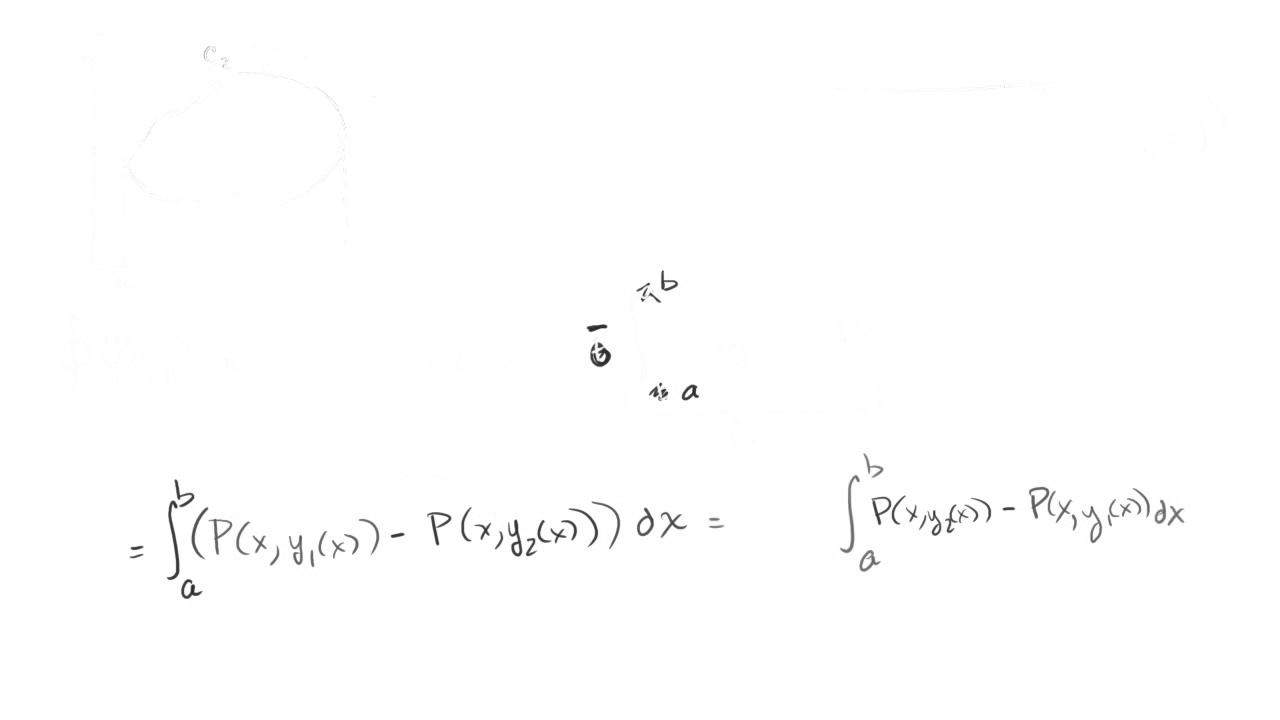 C₂
b
a
= ∫ₐᵇ (P(x, y₁(x)) - P(x, y₂(x))) dx = ∫ₐᵇ P(x, y₂(x)) - P(x, y₁(x)) dx